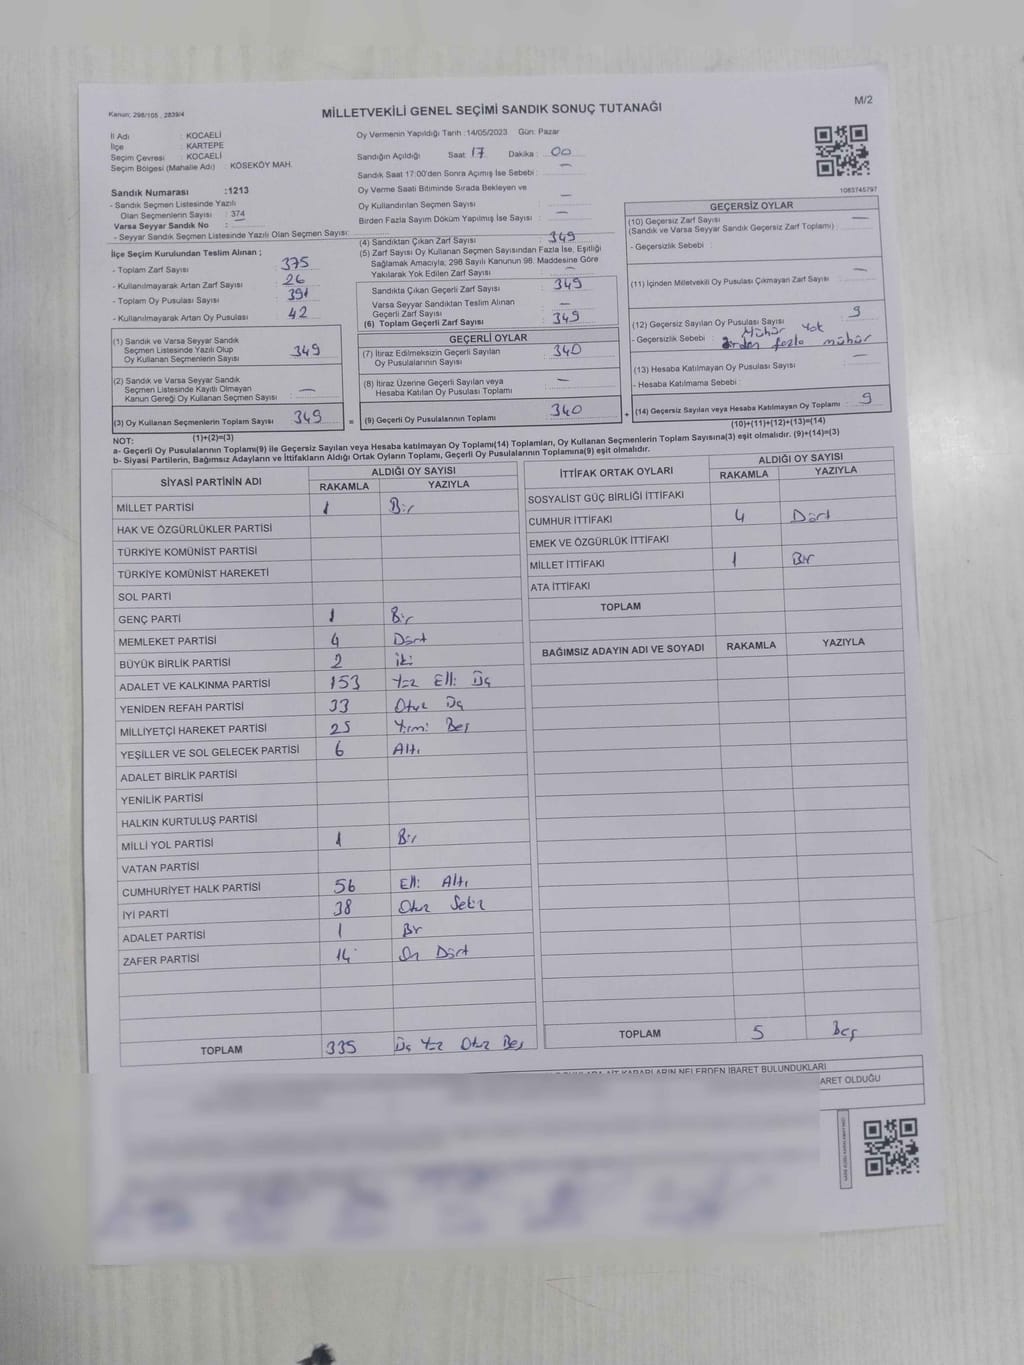 Kanun; 298/105 , 2839/4
MİLLETVEKİLİ GENEL SEÇİMİ SANDIK SONUÇ TUTANAĞI
M/2
İl Adı : KOCAELİ
İlçe : KARTEPE
Seçim Çevresi : KOCAELİ
Seçim Bölgesi (Mahalle Adı) : KÖSEKÖY MAH.
Sandık Numarası :1213
- Sandık Seçmen Listesinde Yazılı
Olan Seçmenlerin Sayısı : 374
Varsa Seyyar Sandık No :
- Seyyar Sandık Seçmen Listesinde Yazılı Olan Seçmen Sayısı:
Oy Vermenin Yapıldığı Tarih :14/05/2023 Gün: Pazar
Sandığın Açıldığı Saat 17 Dakika : 00
Sandık Saat 17:00'den Sonra Açımış İse Sebebi : —
Oy Verme Saati Bitiminde Sırada Bekleyen ve
Oy Kullandırılan Seçmen Sayısı : —
Birden Fazla Sayım Döküm Yapılmış İse Sayısı : —
1083745797
İlçe Seçim Kurulundan Teslim Alınan ;
- Toplam Zarf Sayısı : 375
- Kullanılmayarak Artan Zarf Sayısı : 26
- Toplam Oy Pusulası Sayısı : 391
- Kullanılmayarak Artan Oy Pusulası : 42
(1) Sandık ve Varsa Seyyar Sandık
Seçmen Listesinde Yazılı Olup
Oy Kullanan Seçmenlerin Sayısı : 349
(2) Sandık ve Varsa Seyyar Sandık
Seçmen Listesinde Kayıtlı Olmayan
Kanun Gereği Oy Kullanan Seçmen Sayısı : —
(3) Oy Kullanan Seçmenlerin Toplam Sayısı : 349
(1)+(2)=(3)
(4) Sandıktan Çıkan Zarf Sayısı : 349
(5) Zarf Sayısı Oy Kullanan Seçmen Sayısından Fazla İse, Eşitliği
Sağlamak Amacıyla; 298 Sayılı Kanunun 98. Maddesine Göre
Yakılarak Yok Edilen Zarf Sayısı : —
Sandıkta Çıkan Geçerli Zarf Sayısı : 349
Varsa Seyyar Sandıktan Teslim Alınan
Geçerli Zarf Sayısı : —
(6) Toplam Geçerli Zarf Sayısı : 349
GEÇERLİ OYLAR
(7) İtiraz Edilmeksizin Geçerli Sayılan
Oy Pusulalarının Sayısı : 340
(8) İtiraz Üzerine Geçerli Sayılan veya
Hesaba Katılan Oy Pusulaları Toplamı : —
= (9) Geçerli Oy Pusulalarının Toplamı : 340
GEÇERSİZ OYLAR
(10) Geçersiz Zarf Sayısı : —
(Sandık ve Varsa Seyyar Sandık Geçersiz Zarf Toplamı)
- Geçersizlik Sebebi :
(11) İçinden Milletvekili Oy Pusulası Çıkmayan Zarf Sayısı : —
(12) Geçersiz Sayılan Oy Pusulası Sayısı : 9
- Geçersizlik Sebebi : Mühür Yok
Birden fazla mühür
(13) Hesaba Katılmayan Oy Pusulası Sayısı : —
- Hesaba Katılmama Sebebi :
+ (14) Geçersiz Sayılan veya Hesaba Katılmayan Oy Toplamı : 9
(10)+(11)+(12)+(13)=(14)
NOT:
a- Geçerli Oy Pusulalarının Toplamı(9) ile Geçersiz Sayılan veya Hesaba katılmayan Oy Toplamı(14) Toplamları, Oy Kullanan Seçmenlerin Toplam Sayısına(3) eşit olmalıdır. (9)+(14)=(3)
b- Siyasi Partilerin, Bağımsız Adayların ve İttifakların Aldığı Ortak Oyların Toplamı, Geçerli Oy Pusulalarının Toplamına(9) eşit olmalıdır.
SİYASİ PARTİNİN ADI ALDIĞI OY SAYISI
RAKAMLA YAZIYLA
MİLLET PARTİSİ 1 Bir
HAK VE ÖZGÜRLÜKLER PARTİSİ
TÜRKİYE KOMÜNİST PARTİSİ
TÜRKİYE KOMÜNİST HAREKETİ
SOL PARTİ
GENÇ PARTİ 1 Bir
MEMLEKET PARTİSİ 4 Dört
BÜYÜK BİRLİK PARTİSİ 2 iki
ADALET VE KALKINMA PARTİSİ 153 Yüz Elli Üç
YENİDEN REFAH PARTİSİ 33 Otuz Üç
MİLLİYETÇİ HAREKET PARTİSİ 25 Yirmi Beş
YEŞİLLER VE SOL GELECEK PARTİSİ 6 Altı
ADALET BİRLİK PARTİSİ
YENİLİK PARTİSİ
HALKIN KURTULUŞ PARTİSİ
MİLLİ YOL PARTİSİ 1 Bir
VATAN PARTİSİ
CUMHURİYET HALK PARTİSİ 56 Elli Altı
İYİ PARTİ 38 Otuz Sekiz
ADALET PARTİSİ 1 Bir
ZAFER PARTİSİ 14 On Dört
TOPLAM 335 Üç Yüz Otuz Beş
İTTİFAK ORTAK OYLARI ALDIĞI OY SAYISI
RAKAMLA YAZIYLA
SOSYALİST GÜÇ BİRLİĞİ İTTİFAKI
CUMHUR İTTİFAKI 4 Dört
EMEK VE ÖZGÜRLÜK İTTİFAKI
MİLLET İTTİFAKI 1 Bir
ATA İTTİFAKI
TOPLAM
BAĞIMSIZ ADAYIN ADI VE SOYADI RAKAMLA YAZIYLA
TOPLAM 5 Beş
KARARLARIN NELERDEN İBARET BULUNDUKLARI
ARET OLDUĞU